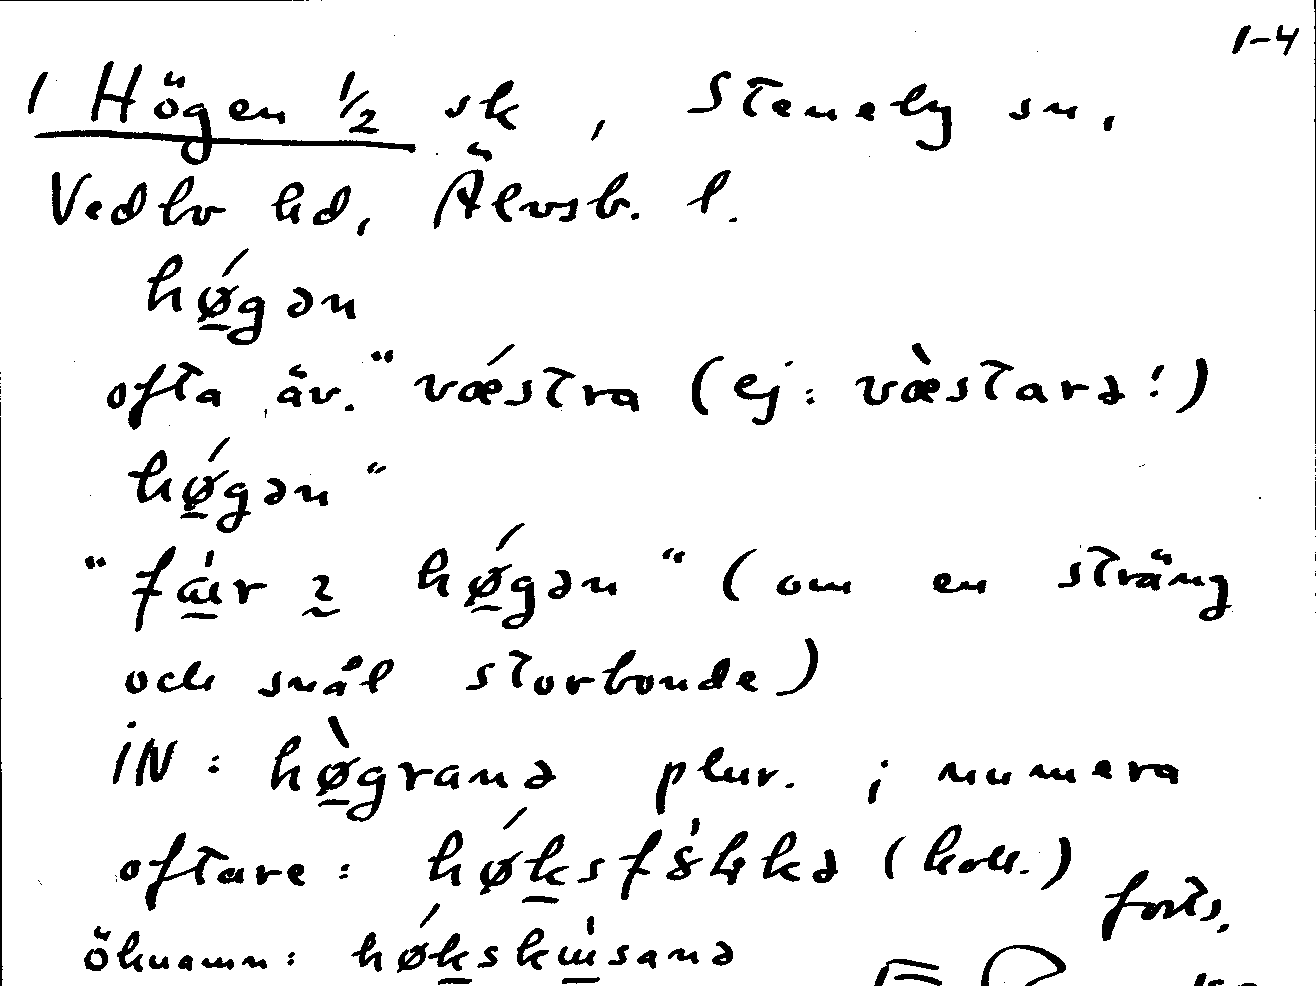 1-4
1 Högen 1/2 sk, Steneby sn,
Vedbo hd, Älvsb. l.
hǿ̲gən
ofta äv. "vǽstra (ej: væ̀starə!)
hǿ̲gən"
"fǽ̲r 2 hǿ̲gən" (om en sträng
och snål storbonde)
iN: hø̲̀granə plur. ; numera
oftare: hǿk̲sfȯlkə (koll.)
forts.
öknamn: hǿk̲sku̲sanə